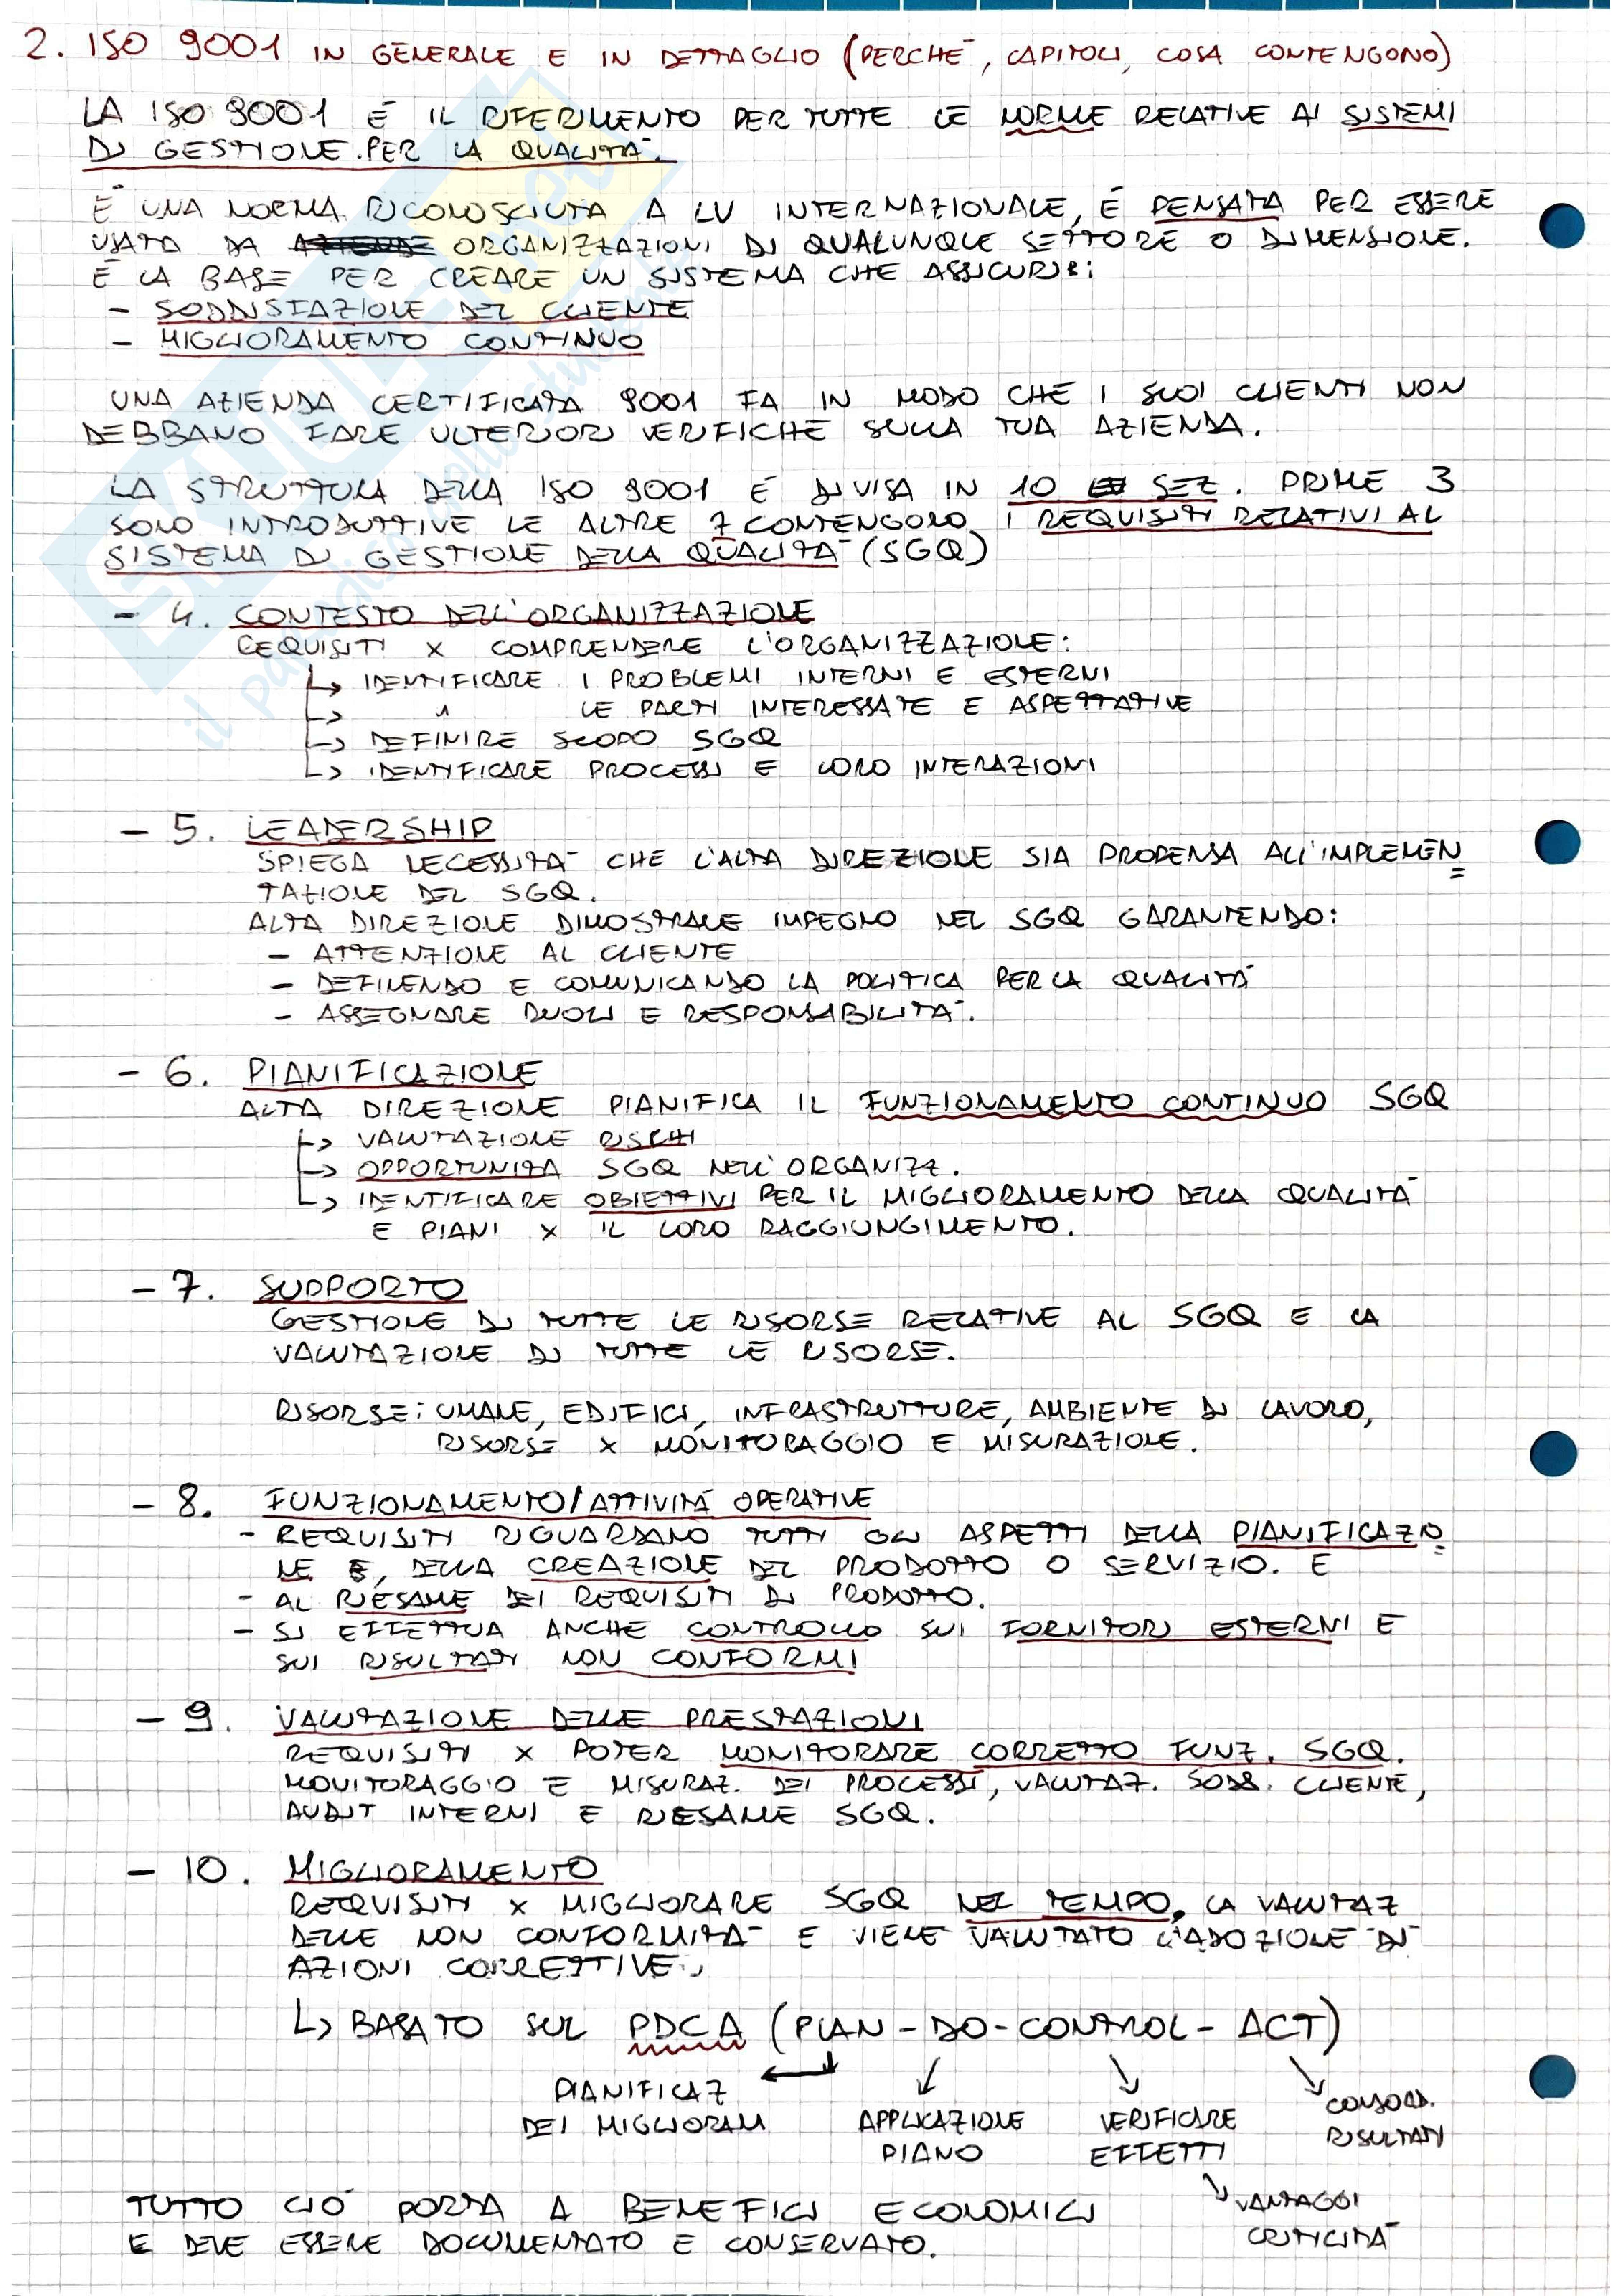 2. ISO 9001 IN GENERALE E IN DETTAGLIO (PERCHÉ, CAPITOLI, COSA CONTENGONO)
LA ISO 9001 È IL RIFERIMENTO PER TUTTE LE NORME RELATIVE AI SISTEMI
DI GESTIONE PER LA QUALITÀ.
È UNA NORMA RICONOSCIUTA A LV INTERNAZIONALE, È PENSATA PER ESSERE
USATA DA AZIENDE ORGANIZZAZIONI DI QUALUNQUE SETTORE O DIMENSIONE.
È LA BASE PER CREARE UN SISTEMA CHE ASSICURI:
- SODDISFAZIONE DEL CLIENTE
- MIGLIORAMENTO CONTINUO
UNA AZIENDA CERTIFICATA 9001 FA IN MODO CHE I SUOI CLIENTI NON
DEBBANO FARE ULTERIORI VERIFICHE SULLA TUA AZIENDA.
LA STRUTTURA DELLA ISO 9001 È DIVISA IN 10 SEZ. PRIME 3
SONO INTRODUTTIVE LE ALTRE 7 CONTENGONO I REQUISITI RELATIVI AL
SISTEMA DI GESTIONE DELLA QUALITÀ (SGQ)
- 4. CONTESTO DELL'ORGANIZZAZIONE
REQUISITI x COMPRENDERE L'ORGANIZZAZIONE:
↳ IDENTIFICARE I PROBLEMI INTERNI E ESTERNI
↳ " LE PARTI INTERESSATE E ASPETTATIVE
↳ DEFINIRE SCOPO SGQ
↳ IDENTIFICARE PROCESSI E LORO INTERAZIONI
- 5. LEADERSHIP
SPIEGA NECESSITÀ CHE L'ALTA DIREZIONE SIA PROPENSA ALL'IMPLEMEN
TAZIONE DEL SGQ.
ALTA DIREZIONE DIMOSTRARE IMPEGNO NEL SGQ GARANTENDO:
- ATTENZIONE AL CLIENTE
- DEFINENDO E COMUNICANDO LA POLITICA PER LA QUALITÀ
- ASSEGNARE RUOLI E RESPONSABILITÀ.
- 6. PIANIFICAZIONE
ALTA DIREZIONE PIANIFICA IL FUNZIONAMENTO CONTINUO SGQ
↳ VALUTAZIONE RISCHI
↳ OPPORTUNITÀ SGQ NELL'ORGANIZZ.
↳ IDENTIFICARE OBIETTIVI PER IL MIGLIORAMENTO DELLA QUALITÀ
E PIANI x IL LORO RAGGIUNGIMENTO.
- 7. SUPPORTO
GESTIONE DI TUTTE LE RISORSE RELATIVE AL SGQ E LA
VALUTAZIONE DI TUTTE LE RISORSE.
RISORSE: UMANE, EDIFICI, INFRASTRUTTURE, AMBIENTE DI LAVORO,
RISORSE x MONITORAGGIO E MISURAZIONE.
- 8. FUNZIONAMENTO/ATTIVITÀ OPERATIVE
- REQUISITI RIGUARDANO TUTTI GLI ASPETTI DELLA PIANIFICAZIO
NE E, DELLA CREAZIONE DEL PRODOTTO O SERVIZIO. E
- AL RIESAME DEI REQUISITI DI PRODOTTO.
- SI EFFETTUA ANCHE CONTROLLO SUI FORNITORI ESTERNI E
SUI RISULTATI NON CONFORMI
- 9. VALUTAZIONE DELLE PRESTAZIONI
REQUISITI x POTER MONITORARE CORRETTO FUNZ. SGQ.
MONITORAGGIO E MISURAZ. DEI PROCESSI, VALUTAZ. SODD. CLIENTE,
AUDIT INTERNI E RIESAME SGQ.
- 10. MIGLIORAMENTO
REQUISITI x MIGLIORARE SGQ NEL TEMPO, LA VALUTAZ
DELLE NON CONFORMITÀ E VIENE VALUTATO L'ADOZIONE DI
AZIONI CORRETTIVE.
↳ BASATO SUL PDCA (PLAN-DO-CONTROL-ACT)
PIANIFICAZ
DEI MIGLIORAM
APPLICAZIONE
PIANO
VERIFICARE
EFFETTI
CONSOLID.
RISULTATI
VANTAGGI
CRITICITÀ
TUTTO CIÒ PORTA A BENEFICI ECONOMICI
E DEVE ESSERE DOCUMENTATO E CONSERVATO.